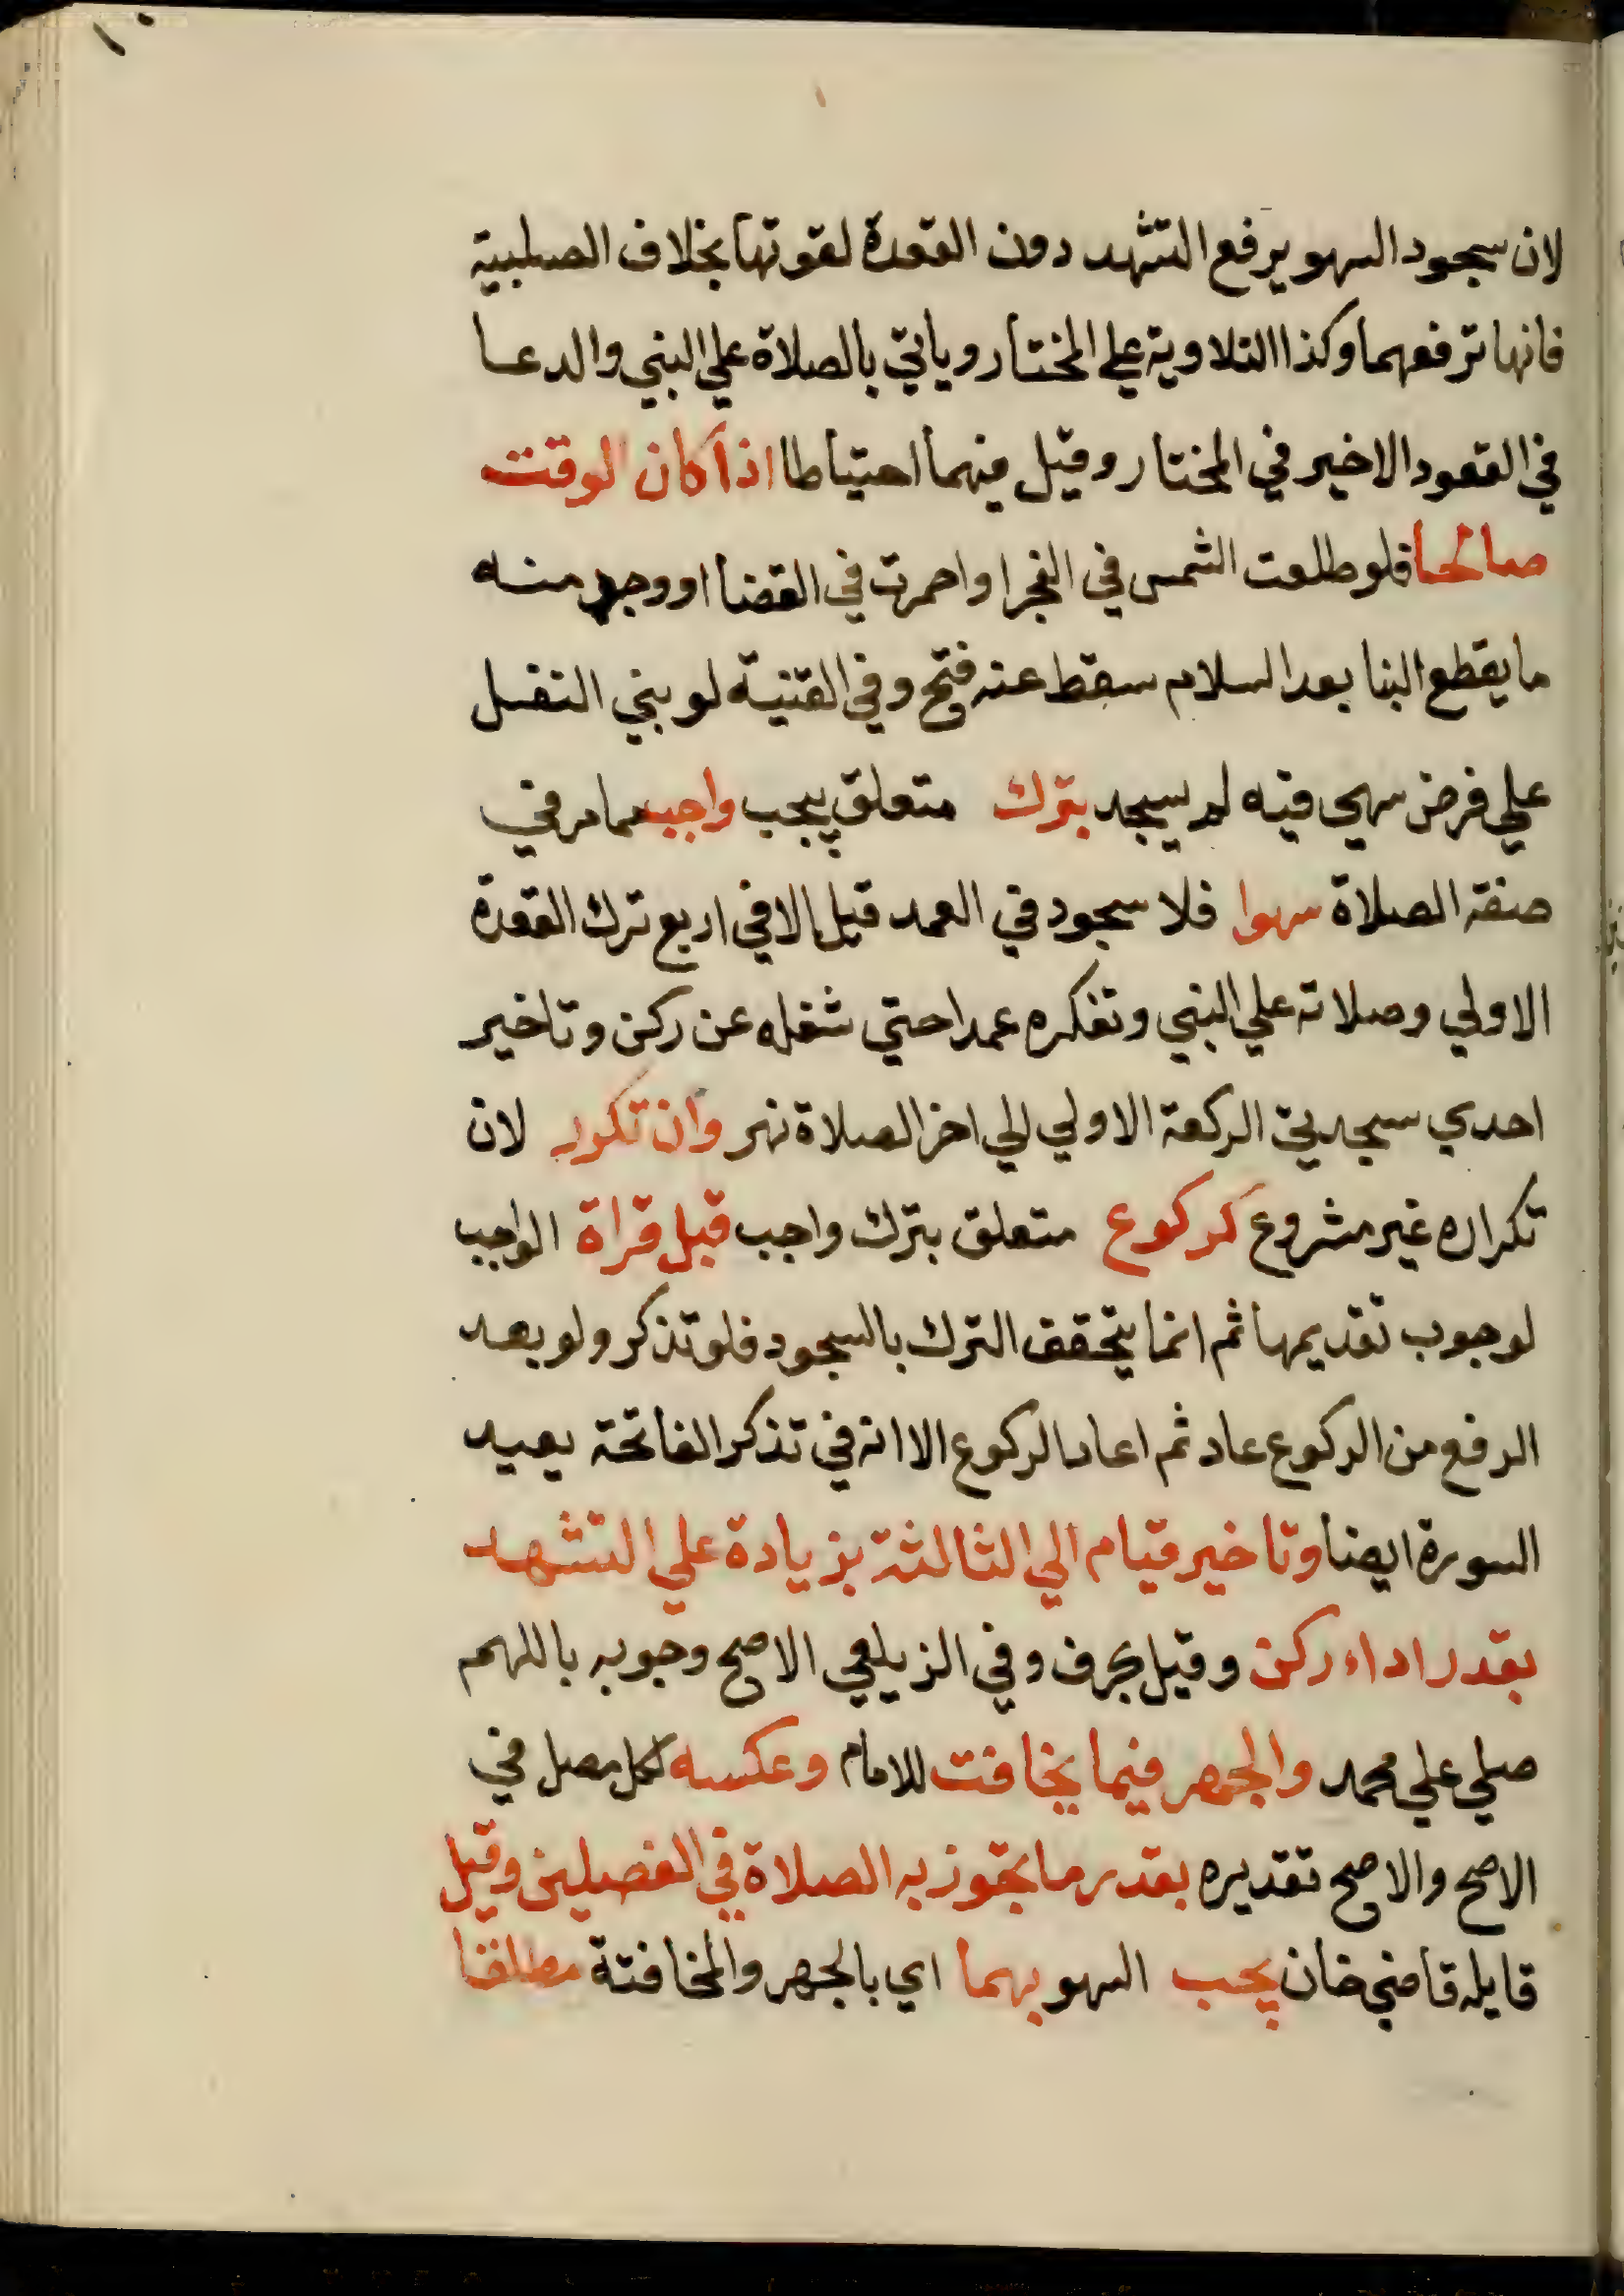 ١٠
لان سجود السهو يرفع التشهد دون القعدة لقوتها بخلاف الصلبية
فانها ترفعهما وكذا التلاوية علي المختار وياتي بالصلاة علي النبي والدعا
في القعود الاخير في المختار وقيل فيهما احتياطا اذا كان الوقت
صالحا فلو طلعت الشمس في الفجر او احمرت في القضا او وجد منه
ما يقطع البنا بعد السلام سقط عنه فتح وفي القنية لو بني النفل
علي فرض سهي فيه لم يسجد بترك متعلق بيجب واجب مما مر في
صفة الصلاة سهوا فلا سجود في العمد قيل الا في اربع ترك القعدة
الاولي وصلاته علي النبي وتفكره عمدا حتي شغله عن ركن وتاخير
احدي سجدتي الركعة الاولي الي اخر الصلاة نهر وان تكرر لان
تكراره غير مشروع كركوع متعلق بترك واجب قبل قراة الواجب
لوجوب تقديمها ثم انما يتحقق الترك بالسجود فلو تذكر ولو بعد
الرفع من الركوع عاد ثم اعاد الركوع الا انه في تذكر الفاتحة يعيد
السورة ايضا وتاخير قيام الي الثالثة بزيادة علي التشهد
بقدر اداء ركن وقيل بحرف وفي الزيلعي الاصح وجوبه باللهم
صلي علي محمد والجهر فيما يخافت للامام وعكسه لكل مصل في
الاصح والاصح تقديره بقدر ما تجوز به الصلاة في الفصلين وقيل
قايله قاضي خان يجب السهو بهما اي بالجهر والمخافتة مطلقا